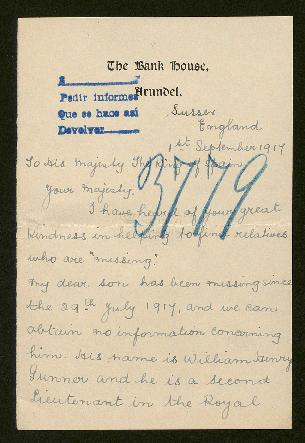 The Bank House,
Arundel.
A
Pedir informes
Que se hace así
Devolver
Sussex
England
1st September 1917
3779
To His Majesty The King of Spain
Your Majesty.
I have heard of your great
kindness in helping to find relatives
who are "missing".
My dear son has been missing since
the 29th July 1917, and we can
obtain no information concerning
him. His name is William Henry
Gunner and he is a second
Lieutenant in the Royal